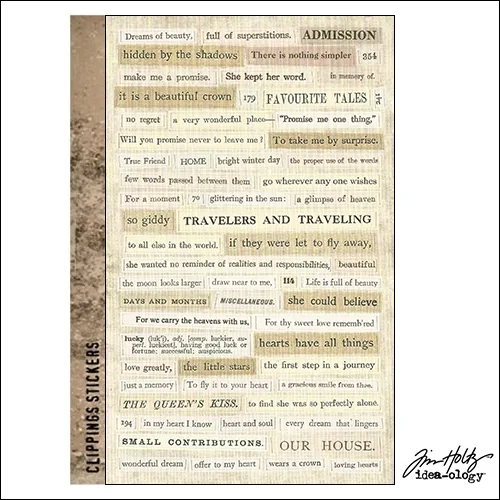 Dreams of beauty, full of superstitions. ADMISSION
hidden by the shadows There is nothing simpler 354
make me a promise. She kept her word. in memory of.
it is a beautiful crown 179 FAVOURITE TALES
no regret a very wonderful place— "Promise me one thing,"
Will you promise never to leave me? To take me by surprise.
True Friend HOME bright winter day the proper use of the words
few words passed between them go wherever any one wishes
For a moment 70 glittering in the sun: a glimpse of heaven
so giddy TRAVELERS AND TRAVELING
to all else in the world. if they were let to fly away,
she wanted no reminder of realities and responsibilities, beautiful
the moon looks larger draw near to me, 114 Life is full of beauty
DAYS AND MONTHS MISCELLANEOUS. she could believe
For we carry the heavens with us, For thy sweet love rememb'red
lucky (luk'i), adj. [comp. luckier, su-
perl. luckiest], having good luck or
fortune; successful; auspicious.
hearts have all things
love greatly, the little stars the first step in a journey
just a memory To fly it to your heart a gracious smile from thee.
THE QUEEN'S KISS. to find she was so perfectly alone.
194 in my heart I know heart and soul every dream that lingers
SMALL CONTRIBUTIONS. OUR HOUSE.
wonderful dream offer to my heart wears a crown loving hearts
CLIPPINGS STICKERS
Tim Holtz
idea-ology